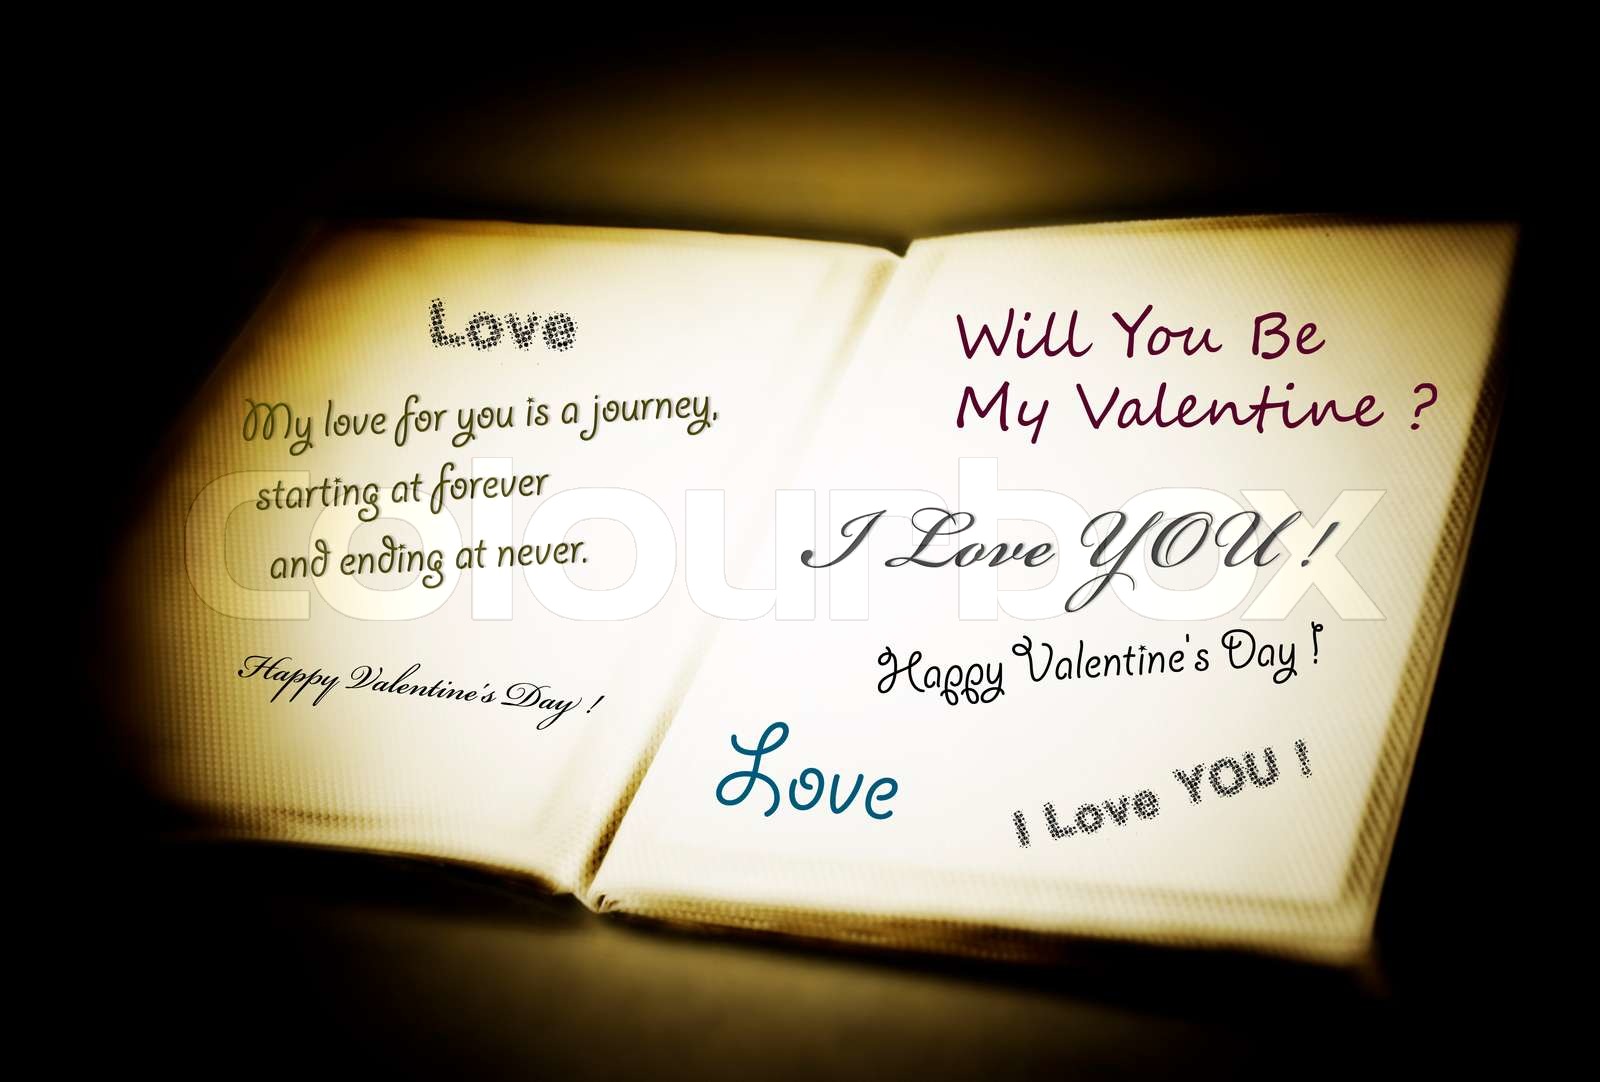 Love
My love for you is a journey,
starting at forever
and ending at never.
Happy Valentine's Day !
Will You Be
My Valentine ?
I Love YOU !
Happy Valentine's Day !
Love
I Love YOU !
colourbox